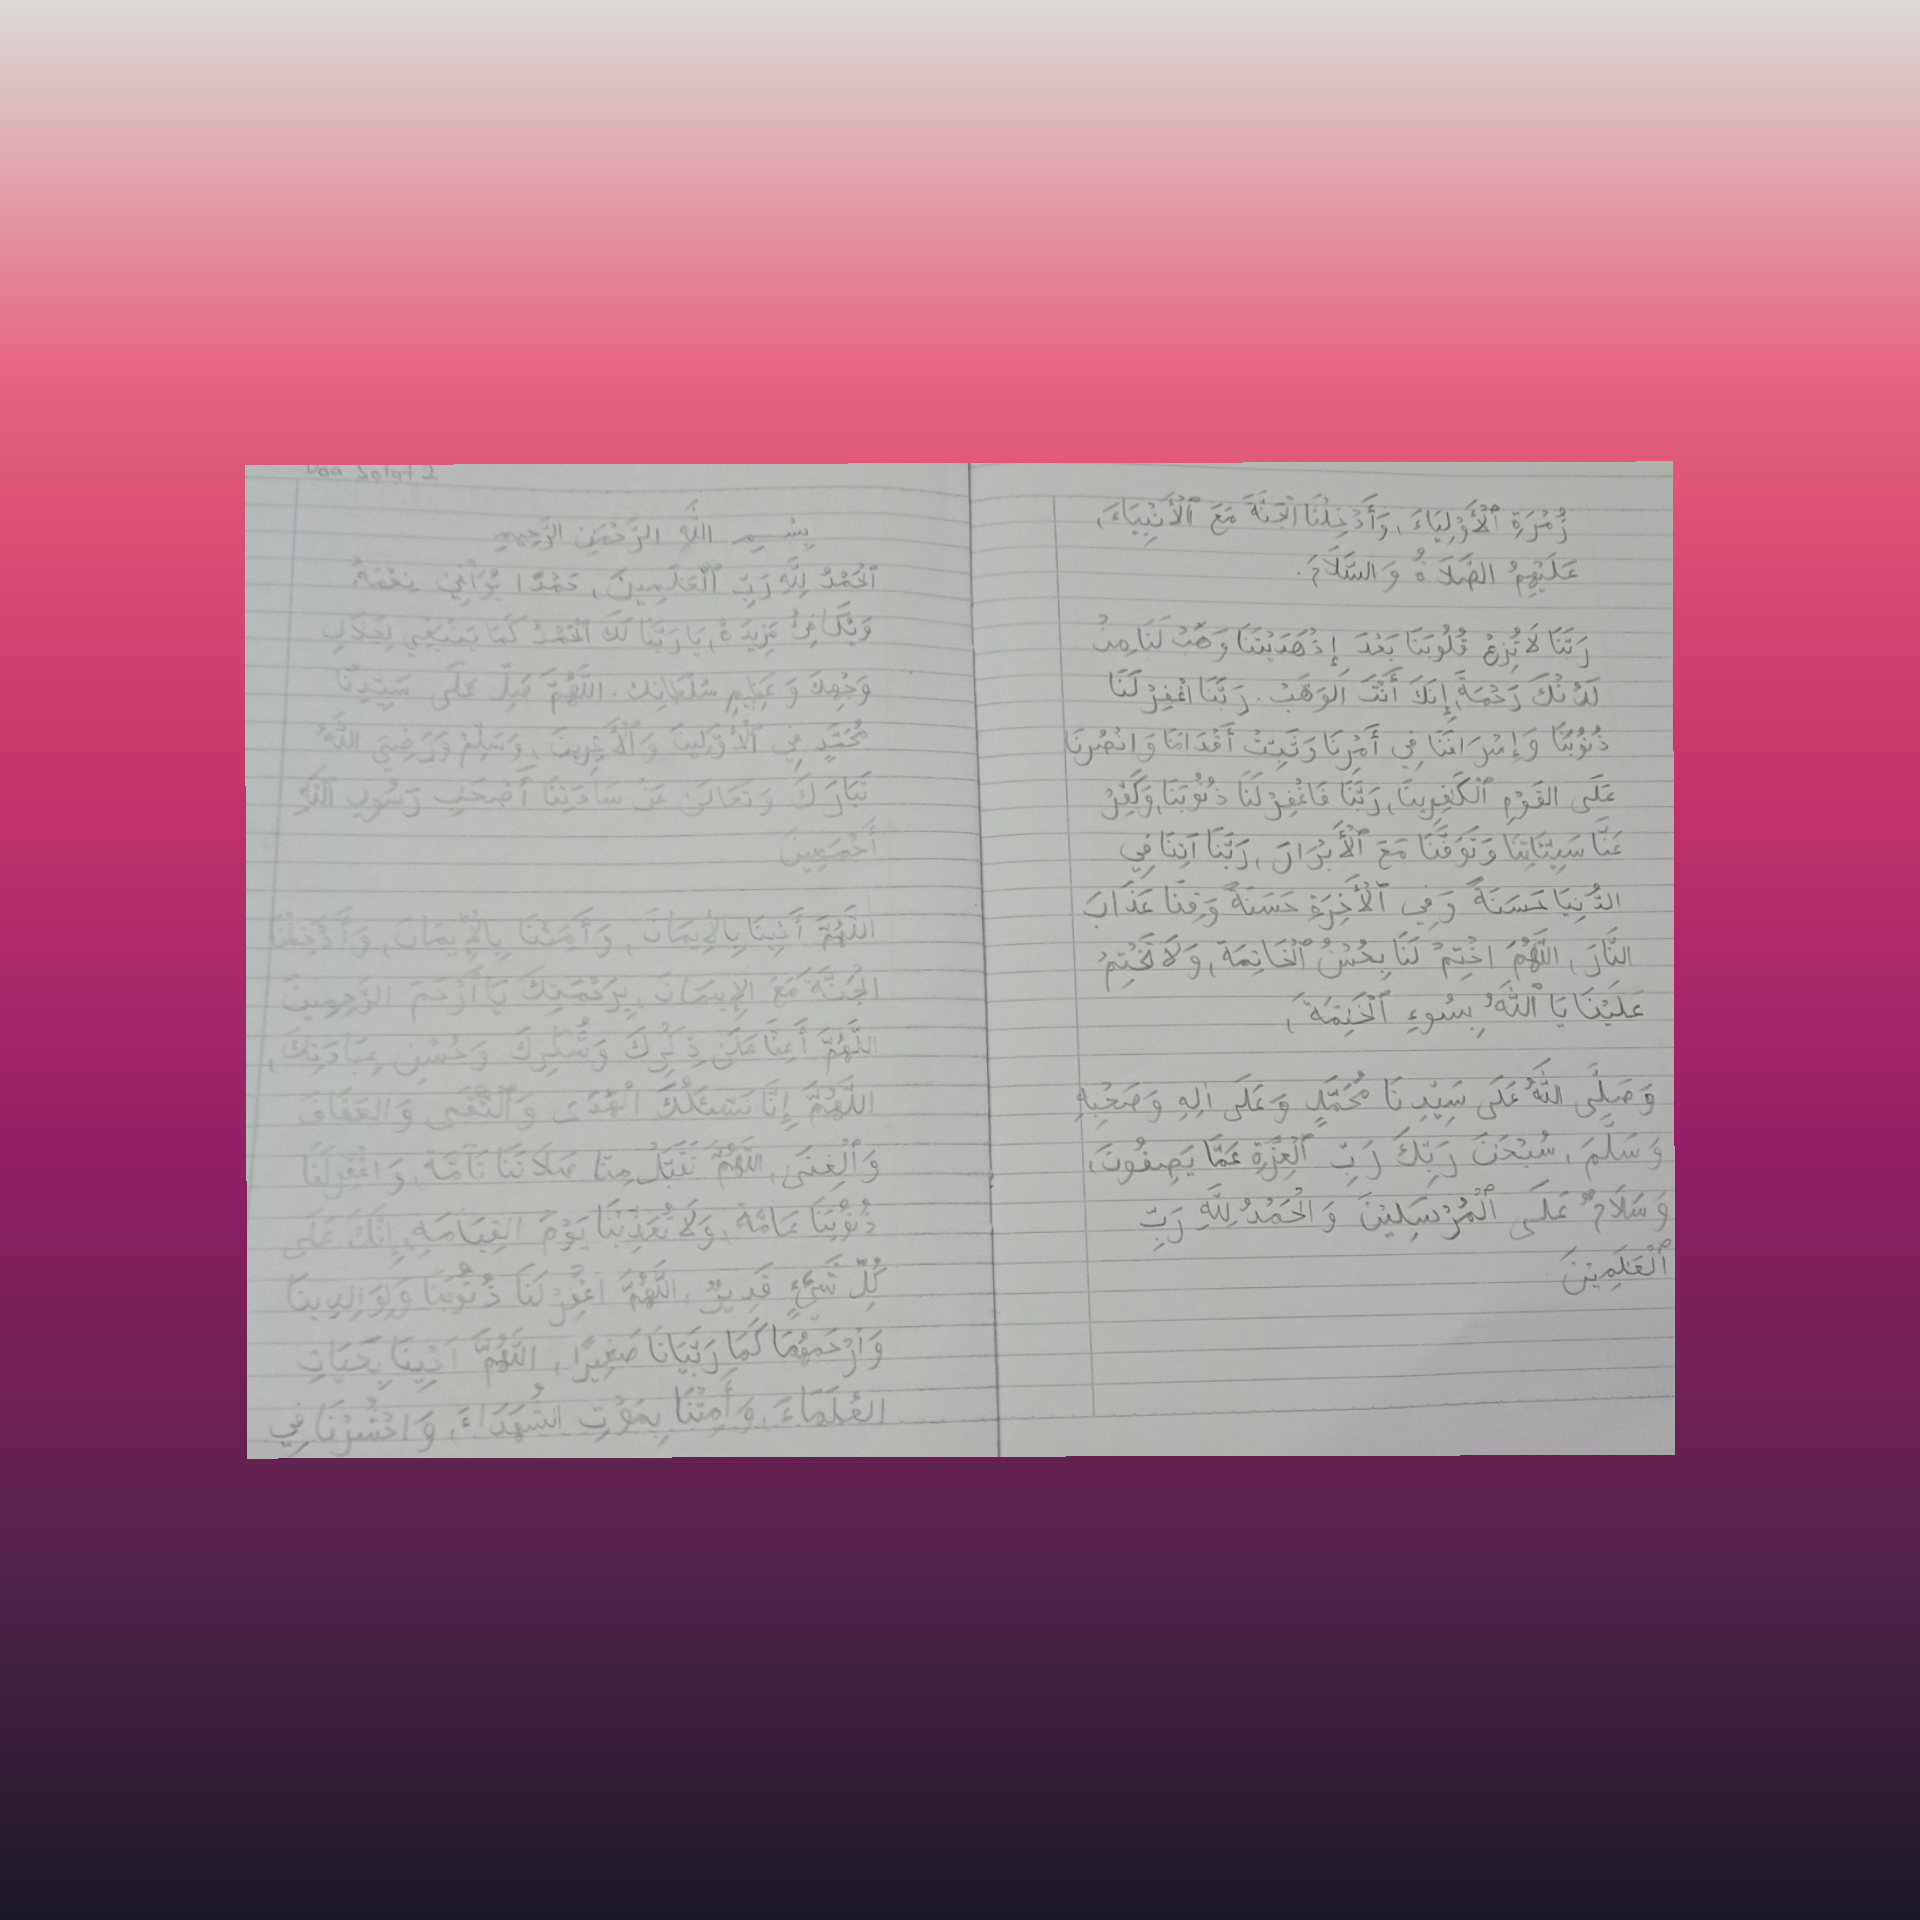 Doa Solat 2
بِسْمِ اللَّهِ الرَّحْمَنِ الرَّحِيمِ
ٱلْحَمْدُ لِلَّهِ رَبِّ ٱلْعَلَمِينَ، حَمْدًا يُوَافِي نِعْمَهُ
وَيُكَافِئُ مَزِيدَهُ، يَا رَبَّنَا لَكَ ٱلْحَمْدُ كَمَا يَنْبَغِي لِجَلَالِ
وَجْهِكَ وَعَظِيمِ سُلْطَانِكَ. اللَّهُمَّ صَلِّ عَلَى سَيِّدِنَا
مُحَمَّدٍ فِي ٱلْأَوَّلِينَ وَٱلْأَخِرِينَ، وَسَلِّمْ وَرَضِيَ اللَّهُ
تَبَارَكَ وَتَعَالَى عَنْ سَادَتِنَا أَصْحَبِ رَسُولِ اللَّهِ
أَجْمَعِينَ
اللَّهُمَّ أَحْيِنَا بِالْإِيمَانِ، وَأَمِتْنَا بِالْإِيمَانِ، وَأَدْخِلْنَا
الْجَنَّةَ مَعَ الْإِيمَانَ، بِرَحْمَتِكَ يَا أَرْحَمَ الرَّحِمِينَ
اللَّهُمَّ أَعِنَّا عَلَى ذِكْرِكَ وَشُكْرِكَ وَحُسْنِ عِبَادَتِكَ،
اللَّهُمَّ إِنَّا نَسْئَلُكَ الْهُدَى وَٱلتُّقَى وَالعَفَافَ
وَٱلْغِنَى، اللَّهُمَّ تَقَبَّلْ مِنَّا صَلَاتَنَا تَآمَّةَ، وَاغْفِرْلَنَا
ذُنُوْبَنَا عَامَّةَ، وَلَا تُعَذِّبْنَا يَوْمَ القِيَامَةِ، إِنَّكَ عَلَى
كُلِّ شَيْءٍ قَدِيرٌ، اللَّهُمَّ اغْفِرْ لَنَا ذُنُوْبَنَا وَلِوَالِدِينَا
وَارْحَمْهُمَا كَمَا رَبَّيَانَا صَغِيرًا، اللَّهُمَّ احْيِنَا بِحَيَاتِ
العُلَمَاءَ، وَأَمِتْنَا بِمَوْتِ الشُّهَدَاءَ، وَاحْشُرْنَا فِي
زُمْرَةِ ٱلْأَوْلِيَاءَ، وَأَدْخِلْنَا الْجَنَّةَ مَعَ ٱلْأَنْبِيَاءَ،
عَلَيْهِمُ الصَّلَاةُ وَالسَّلَامَ.
رَبَّنَا لَا تُزِغْ قُلُوبَنَا بَعْدَ إِذْهَدَيْتَنَا وَهَبْ لَنَا مِنْ
لَدُنْكَ رَحْمَةً، إِنَكَ أَنْتَ الوَهَّبْ. رَبَّنَا اغْفِرْ لَنَا
ذُنُوْبَنَا وَإِسْرَافَنَا فِي أَمْرِنَا وَثَبِّتْ أَقْدَامَنَا وَانْصُرْنَا
عَلَى القَوْمِ ٱلْكَفِرِينَا، رَبَّنَا فَاغْفِرْ لَنَا ذُنُوْبَنَا، وَكَفِّرْ
عَنَّا سَيِّئَاتِنَا وَتَوَفَّنَا مَعَ ٱلْأَبْرَارَ، رَبَّنَا آتِنَا فِي
الدُّنْيَا حَسَنَةً وَفِي ٱلْأَخِرَةِ حَسَنَةً وَقِنَا عَذَابَ
النَّارَ، اللَّهُمَّ اخْتِمْ لَنَا بِحُسْنُ ٱلْخَاتِمَةَ، وَلَا تَخْتِمْ
عَلَيْنَا يَا ٱللَّهُ بِسُوءِ ٱلْخَتِمَةَ،
وَصَلَّى اللَّهُ عَلَى سَيِّدِنَا مُحَمَّدٍ وَعَلَى الِهِ وَصَحْبِهِ
وَسَلَّمَ، سُبْحَنَ رَبِّكَ رَبِّ ٱلْعِزَّةِ عَمَّا يَصِفُونَ،
وَسَلَامٌ عَلَى ٱلْمُرْسَلِيْنَ وَالْحَمْدُ لِلَّهِ رَبِّ
ٱلْعَلَمِيْنَ